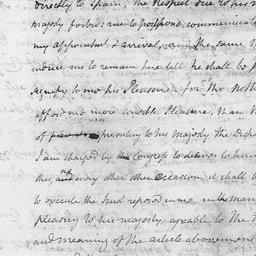 directly to Spain, the Respect due to his
majesty forbids me to postpone communicate
my appointment & arrival, the same
induce me to remain here till he shall be
signify to me his Pleasure. for tho' Noth
afford me more sensible Pleasure, than
of presenting to his Majesty the Disp
I am charged by Congress to deliver to him
the, any other Occasion, it shall b
to execute the Trust reposed in me, in the man
pleasing to his majesty, agreable to the
and meaning of the article abovement